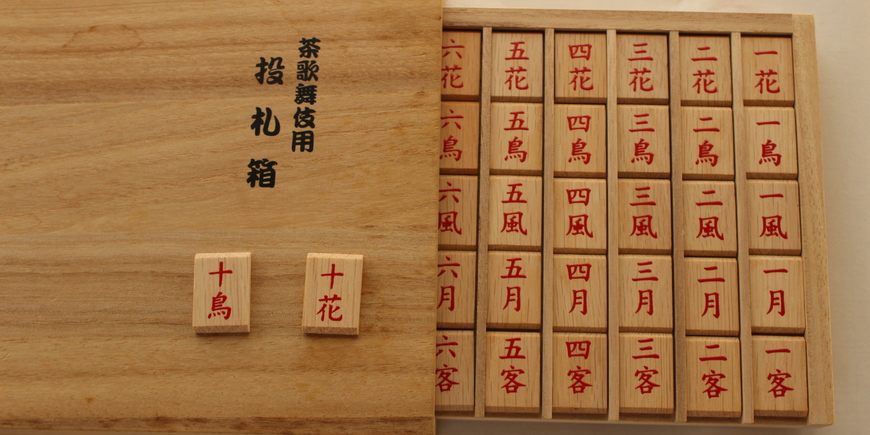 茶歌舞伎用
投札箱
十花
十鳥
一花
一鳥
一風
一月
一客
二花
二鳥
二風
二月
二客
三花
三鳥
三風
三月
三客
四花
四鳥
四風
四月
四客
五花
五鳥
五風
五月
五客
六花
六鳥
六風
六月
六客